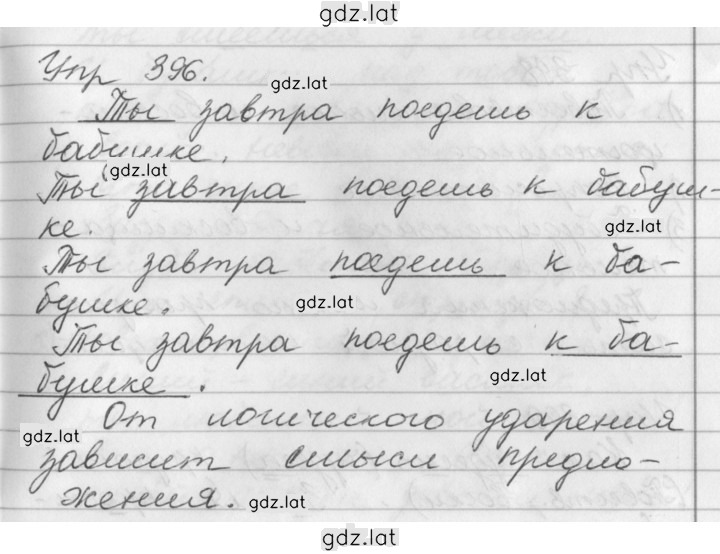 gdz.lat
Упр 396.
gdz.lat
Ты завтра поедешь к
бабушке.
gdz.lat
Ты завтра поедешь к бабуш-
gdz.lat
ке.
Ты завтра поедешь к ба-
gdz.lat
бушке.
Ты завтра поедешь к ба-
gdz.lat
бушке.
От логического ударения
gdz.lat
зависит смысл предло-
жения.
gdz.lat
gdz.lat